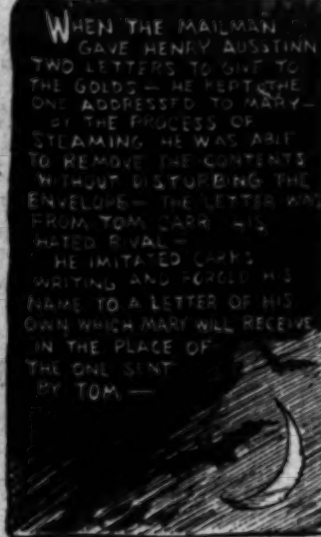 WHEN THE MAILMAN
GAVE HENRY AUSTINN
TWO LETTERS TO GIVE TO
THE GOLDS — HE KEPT THE
ONE ADDRESSED TO MARY —
BY THE PROCESS OF
STEAMING HE WAS ABLE
TO REMOVE THE CONTENTS
WITHOUT DISTURBING THE
ENVELOPE — THE LETTER WAS
FROM TOM CARR HIS
HATED RIVAL —
HE IMITATED CARR'S
WRITING AND FORGED HIS
NAME TO A LETTER OF HIS
OWN WHICH MARY WILL RECEIVE
IN THE PLACE OF
THE ONE SENT
BY TOM —